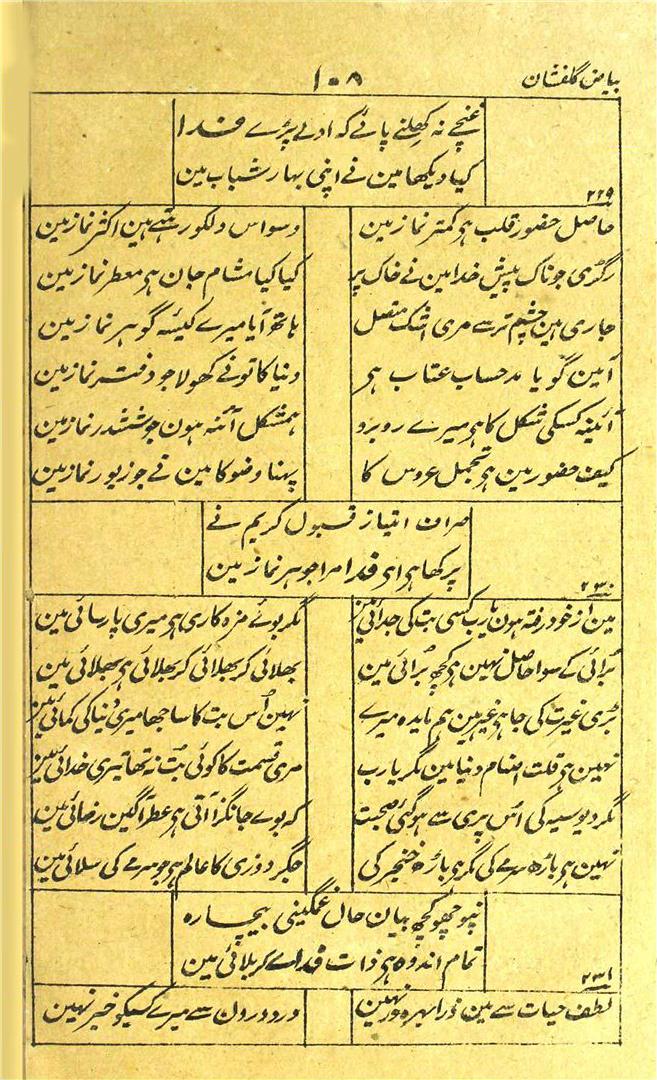 بیاض گلفشان
۱۰۸
غنچے نہ کھلنے پائے کہ اولے پڑے فدا
کیا دیکھا مین نے اپنی بہار شباب مین
۲۲۹
حاصل حضور قلب ہو کمتر نماز مین
وسواس دلکو رہتے ہین اکثر نماز مین
رگڑی جو ناک پیش خدا مین نے خاک پر
کیا کیا مشام جان ہو معطر نماز مین
جاری ہین چشم تر سے مری اشک متصل
ہاتھ آیا میرے کیسۂ گوہر نماز مین
آمین گویا مد حساب عتاب ہی
دنیا کا تونے کھولا جو دفتر نماز مین
آئینہ کسکی شکل کا ہو میرے روبرو
ہمشکل آئنہ ہون جو ششدر نماز مین
کیف حضور مین ہو تجمل عروس کا
پہنا وضو کا مین نے جو زیور نماز مین
صراف امتیاز قبول کریم نے
پرکھا ہو اے فدا مرا جوہر نماز مین
۲۳۰
مین از خود رفتہ ہون یارب کسی بت کی جدائی مین
مگر بوئے مزہ کاری ہو میری پارسائی مین
برائی کے سوا حاصل نہین ہو کچھ برائی مین
بھلائی کر بھلائی کر بھلائی ہو بھلائی مین
بڑی غیرت کی جا ہو غیر ہین ہم مایدہ میرے
نہین اُس بت کا ساجھا میری دنیا کی کمائی مین
نہین ہو قلت اصنام دنیا مین مگر یارب
مری قسمت کا کوئی بت نہ تھا تیری خدائی مین
مگر دیوسیہ کی اُس پری سے ہوگئی صحبت
کہ بوے جانگزا آتی ہو عطر آگین رضائی مین
نہین ہو باڑھ سرمے کی مگر ہو باڑھ خنجر کی
جگر دوزی کا عالم ہو جو سرمے کی سلائی مین
نپوچھو کچھ بیان حال غمگینی بیچارہ
تمام اندوہ ہو ذات فداے کربلائی مین
۲۳۱
لطف حیات سے مین ذرا بہرہ ور نہین
درد درون سے میرے کسیکو خبر نہین